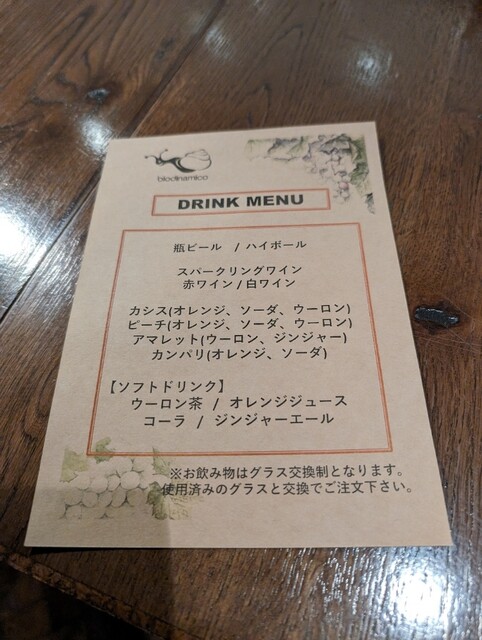 biodinamico
DRINK MENU
瓶ビール / ハイボール
スパークリングワイン
赤ワイン / 白ワイン
カシス(オレンジ、ソーダ、ウーロン)
ピーチ(オレンジ、ソーダ、ウーロン)
アマレット(ウーロン、ジンジャー)
カンパリ(オレンジ、ソーダ)
【ソフトドリンク】
ウーロン茶 / オレンジジュース
コーラ / ジンジャーエール
※お飲み物はグラス交換制となります。
使用済みのグラスと交換でご注文下さい。